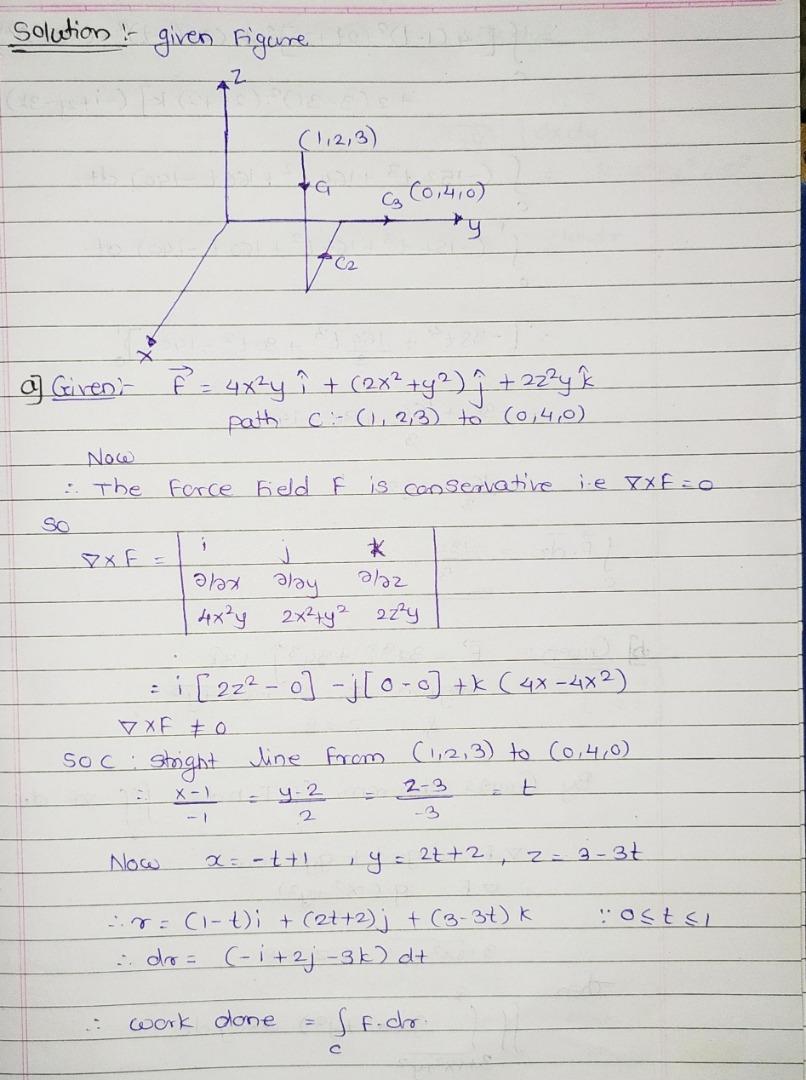 Solution :- given Figure
Z
(1,2,3)
C1
C3 (0,4,0)
y
C2
x
a] Given:- F⃗ = 4x²y î + (2x²+y²) ĵ + 2z²y k̂
path C :- (1,2,3) to (0,4,0)
Now
∴ The Force Field F is conservative i.e ∇×F = 0
so
∇×F = | i j k |
| ∂/∂x ∂/∂y ∂/∂z |
| 4x²y 2x²+y² 2z²y |
= i [2z² - 0] - j [0 - 0] + k (4x - 4x²)
∇×F ≠ 0
SO C : stright line from (1,2,3) to (0,4,0)
∴ x-1/-1 = y-2/2 = z-3/-3 = t
Now x = -t+1 , y = 2t+2 , z = 3-3t
∴ r = (1-t)i + (2t+2)j + (3-3t)k ∵ 0≤t≤1
∴ dr = (-i+2j-3k) dt
∴ work done = ∫ F.dr.
c